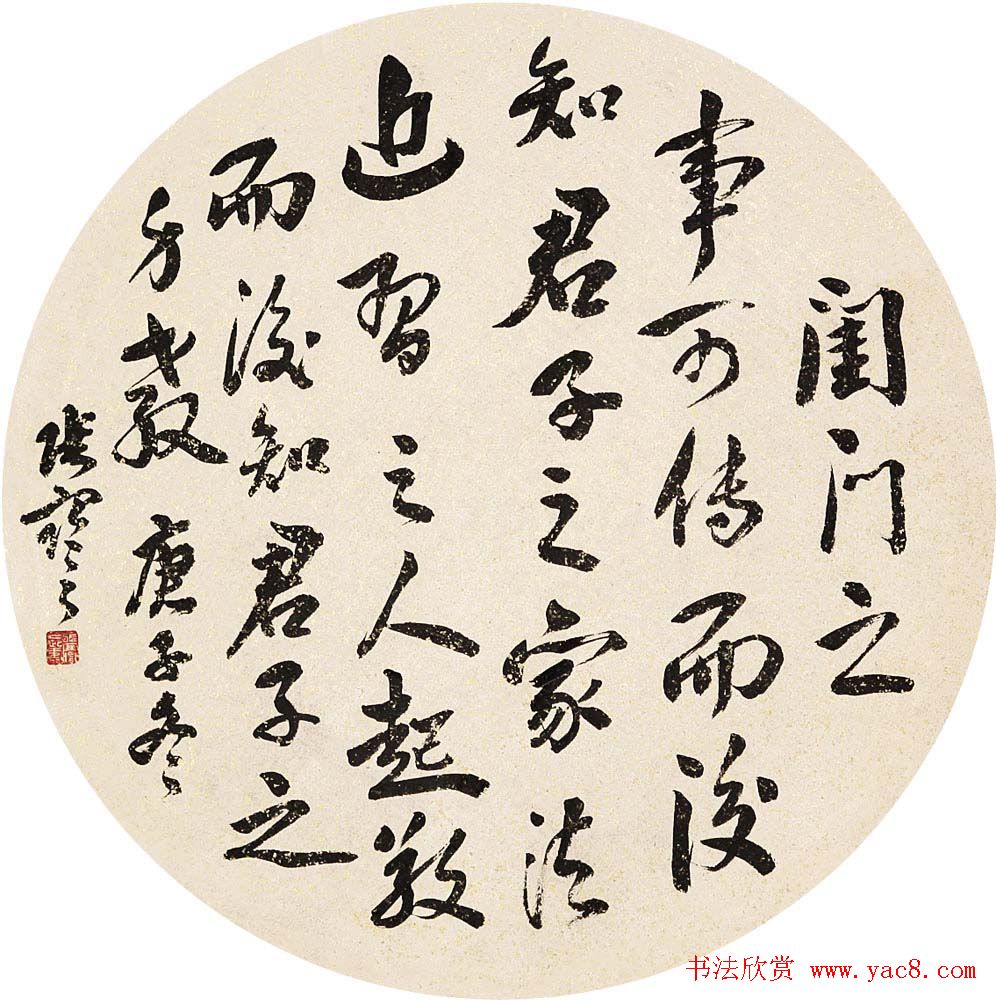 閨門之
事可傳而後
知君子之家法
近習之人起敬
而後知君子之
身教 庚子冬
張
书法欣赏 www.yac8.com